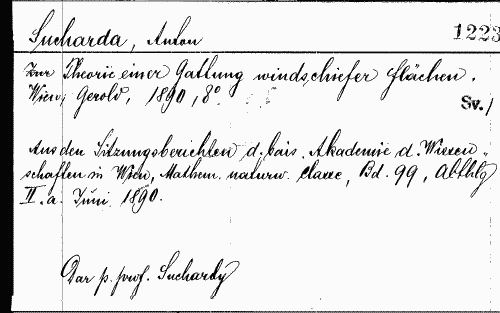 Sucharda, Anton
1223
Zur Theorie einer Gattung windschiefer Flächen.
Wien, Gerold, 1890, 8°.
Sv. 1
Aus den Sitzungsberichten d. kais. Akademie d. Wissen„
schaften in Wien, Mathem. naturw. Classe, Bd. 99, Abthlg
II. a. Juni 1890.
Dar p. prof. Suchardy